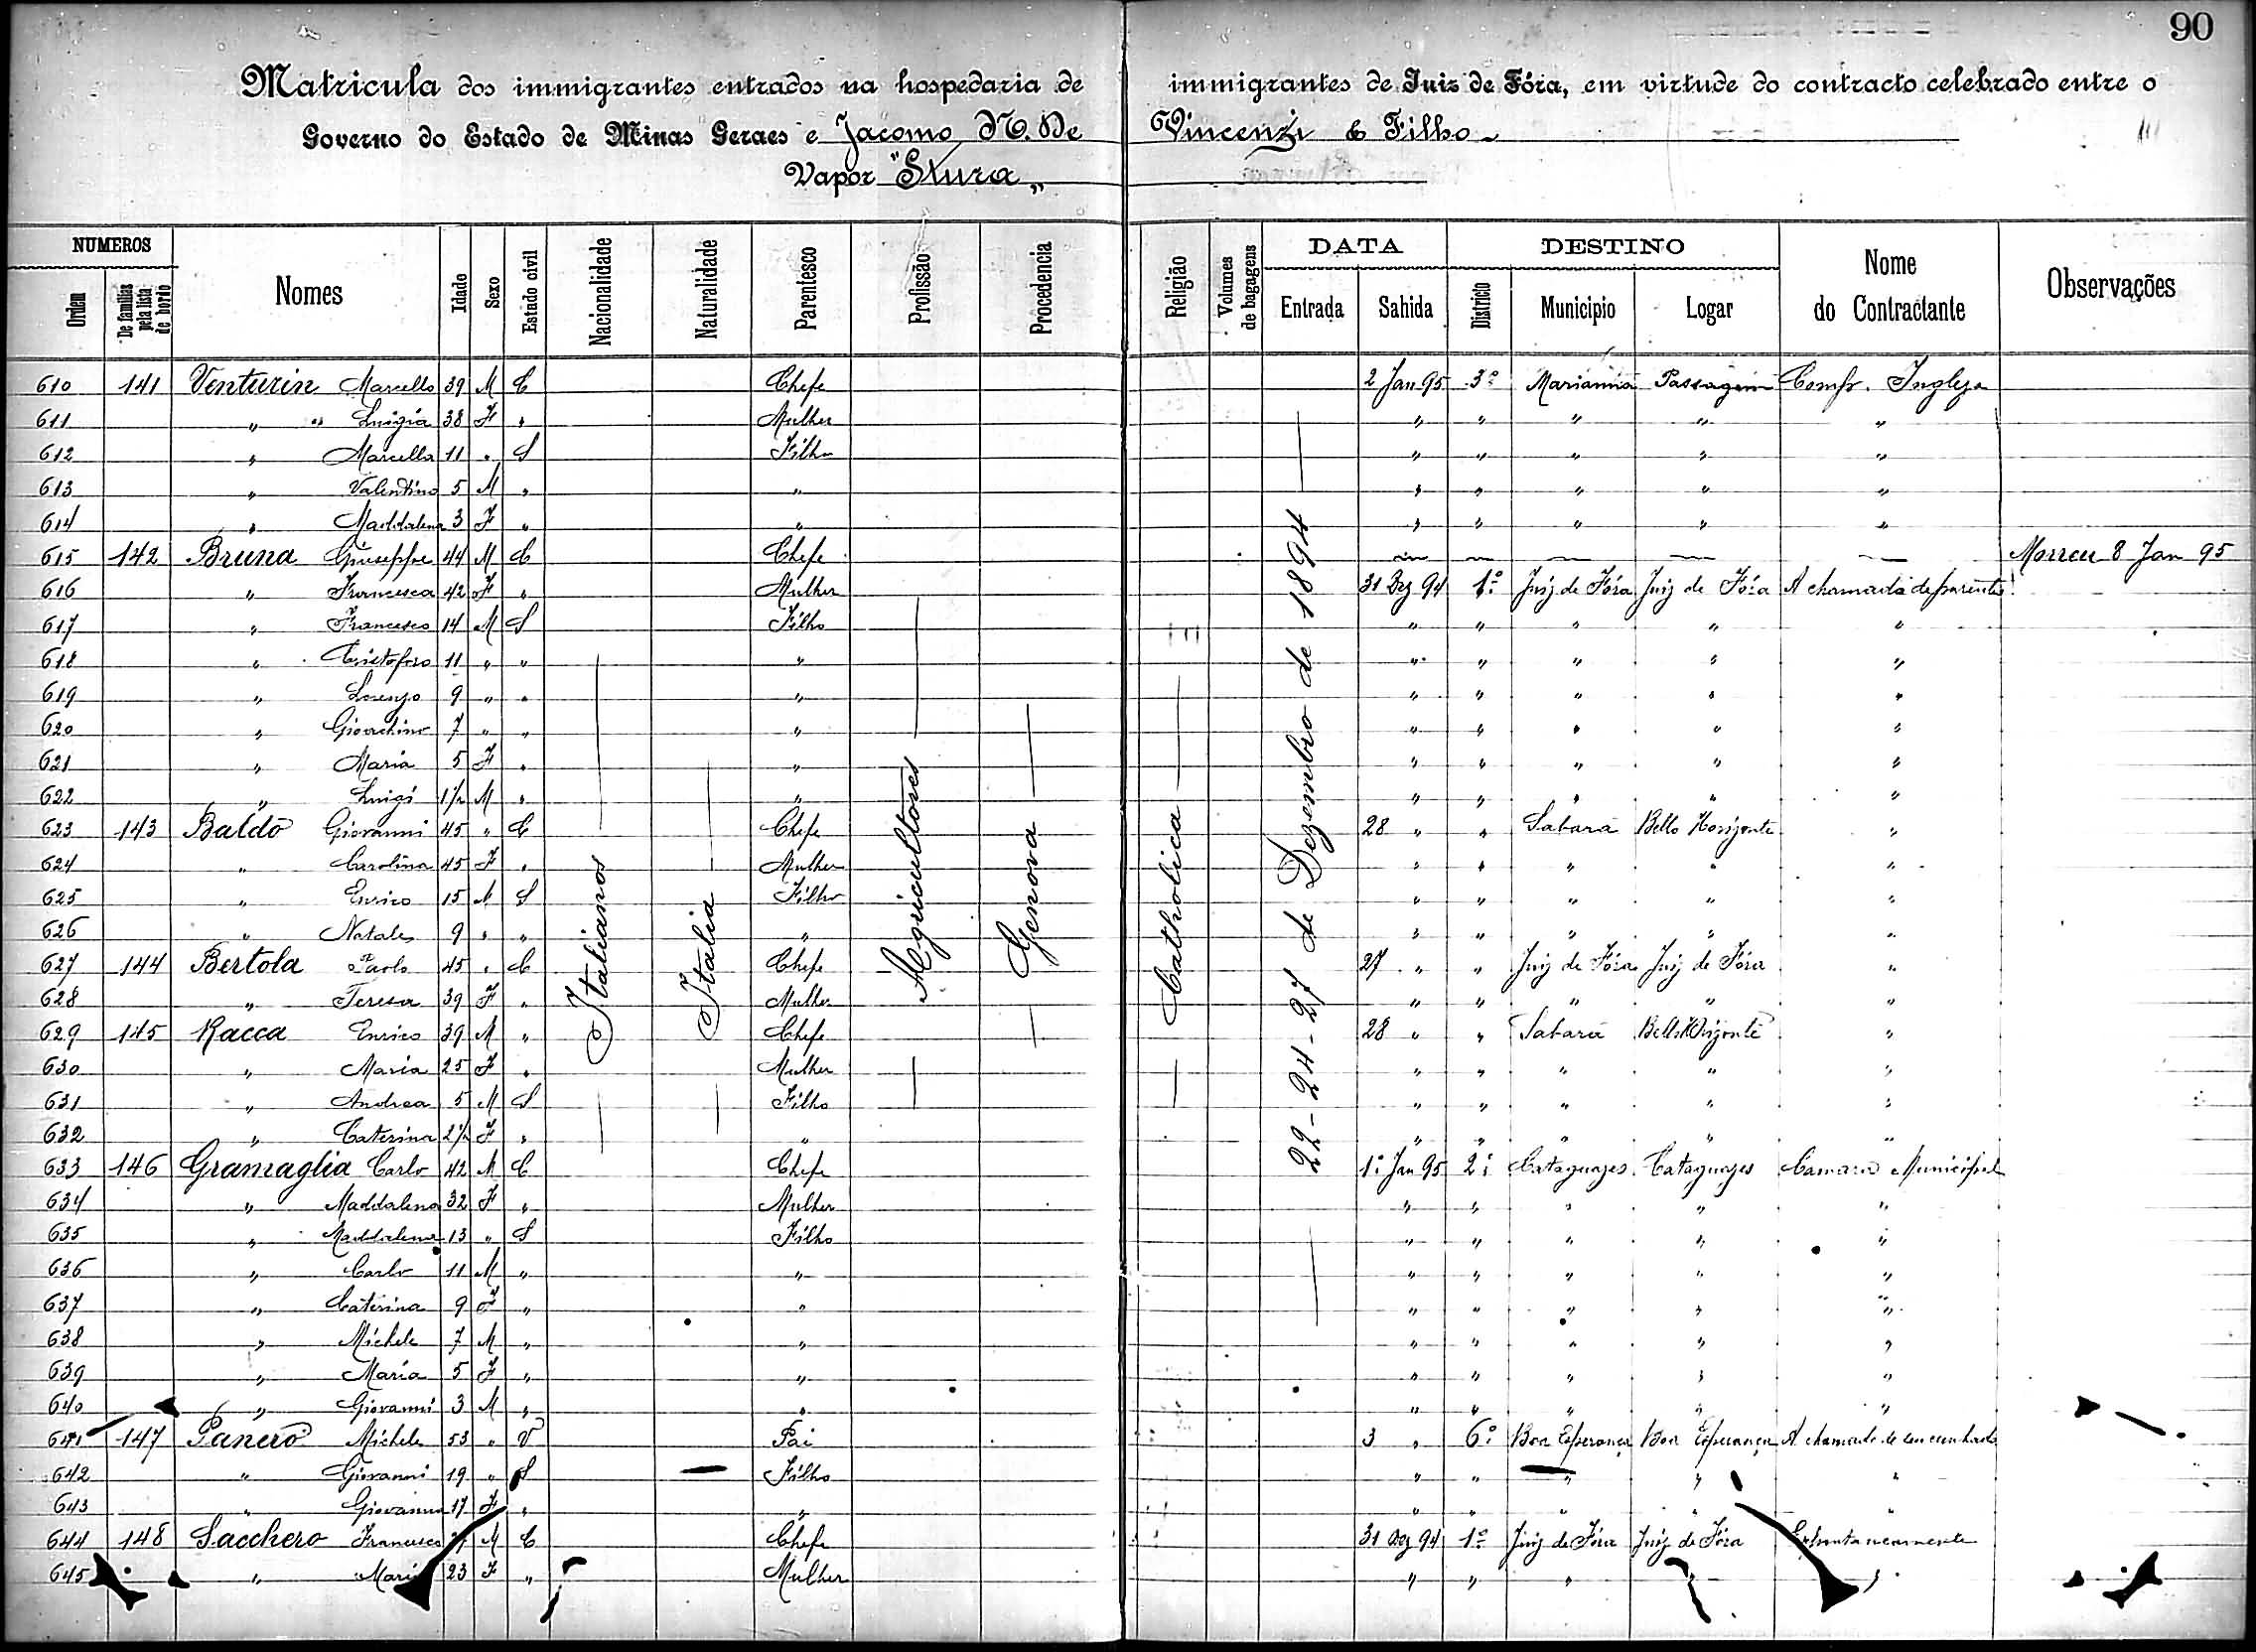 90
Matricula dos immigrantes entrados na hospedaria de immigrantes de Juiz de Fóra, em virtude do contracto celebrado entre o
Governo do Estado de Minas Geraes e Jacomo N. De Vincenzi & Filho
Vapor "Stura"
NUMEROS DATA DESTINO
Ordem De familias pela lista de bordo Nomes Idade Sexo Estado civil Nacionalidade Naturalidade Parentesco Profissão Procedencia Religião Volumes de bagagens Entrada Sahida Districto Municipio Logar Nome do Contractante Observações
Italianos Italia Agricultores Genova Catholica 22-24-27 de Dezembro de 1894
610 141 Venturin Marcello 39 M C Chefe 2 Jan 95 3º Marianna Passagem Comp. Ingleza
611 " " Luigia 38 F " Mulher " " " " "
612 " Marcella 11 " S Filha " " " " "
613 " Valentino 5 M " " " " " " "
614 " Maddalena 3 F " " " " " " "
615 142 Bruna Giuseppe 44 M C Chefe — — — — — Morreu 8 Jan 95
616 " Francesca 42 F " Mulher 31 Dez 94 1º Juiz de Fóra Juiz de Fóra A chamada de parentes
617 " Francesco 14 M S Filho " " " " "
618 " Cristoforo 11 " " " " " " " "
619 " Lorenzo 9 " " " " " " " "
620 " Gioachino 7 " " " " " " " "
621 " Maria 5 F " " " " " " "
622 " Luigi 1/2 M " " " " " " "
623 143 Baldo Giovanni 45 " C Chefe 28 " " Sabara Bello Horizonte "
624 " Carolina 45 F " Mulher " " " " "
625 " Enrico 15 M S Filho " " " " "
626 " Natale 9 " " " " " " " "
627 144 Bertola Paolo 45 " C Chefe 27 " " Juiz de Fóra Juiz de Fóra "
628 " Teresa 39 F " Mulher " " " " "
629 145 Racca Enrico 39 M " Chefe 28 " " Sabara Bello Horizonte "
630 " Maria 25 F " Mulher " " " " "
631 " Andrea 5 M S Filho " " " " "
632 " Caterina 2 1/2 F " " " " " " "
633 146 Gramaglia Carlo 42 M C Chefe 1º Jan 95 2º Cataguazes Cataguazes Camara Municipal
634 " Maddalena 32 F " Mulher " " " " "
635 " Maddalena 13 " S Filho " " " " "
636 " Carlo 11 M " " " " " " "
637 " Caterina 9 F " " " " " " "
638 " Michele 7 M " " " " " " "
639 " Maria 5 F " " " " " " "
640 " Giovanni 3 M " " " " " " "
641 147 Panero Michele 53 " V Pai 3 " 6º Boa Esperança Boa Esperança A chamado de seu cunhado
642 " Giovanni 19 " S Filho " " " " "
643 " Giovanna 17 F " " " " " " "
644 148 Sacchero Francesco M C Chefe 31 Dez 94 1º Juiz de Fóra Juiz de Fóra Espontaneamente
645 " Maria 23 F " Mulher " " " " "